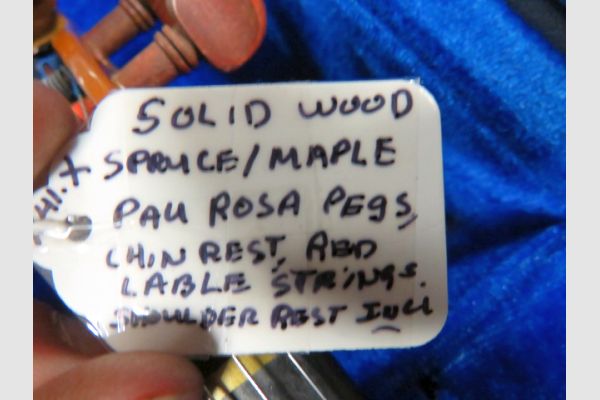 SOLID WOOD
SPRUCE/MAPLE
PAU ROSA PEGS,
CHIN REST, RED
LABLE STRINGS.
SHOULDER REST INCL